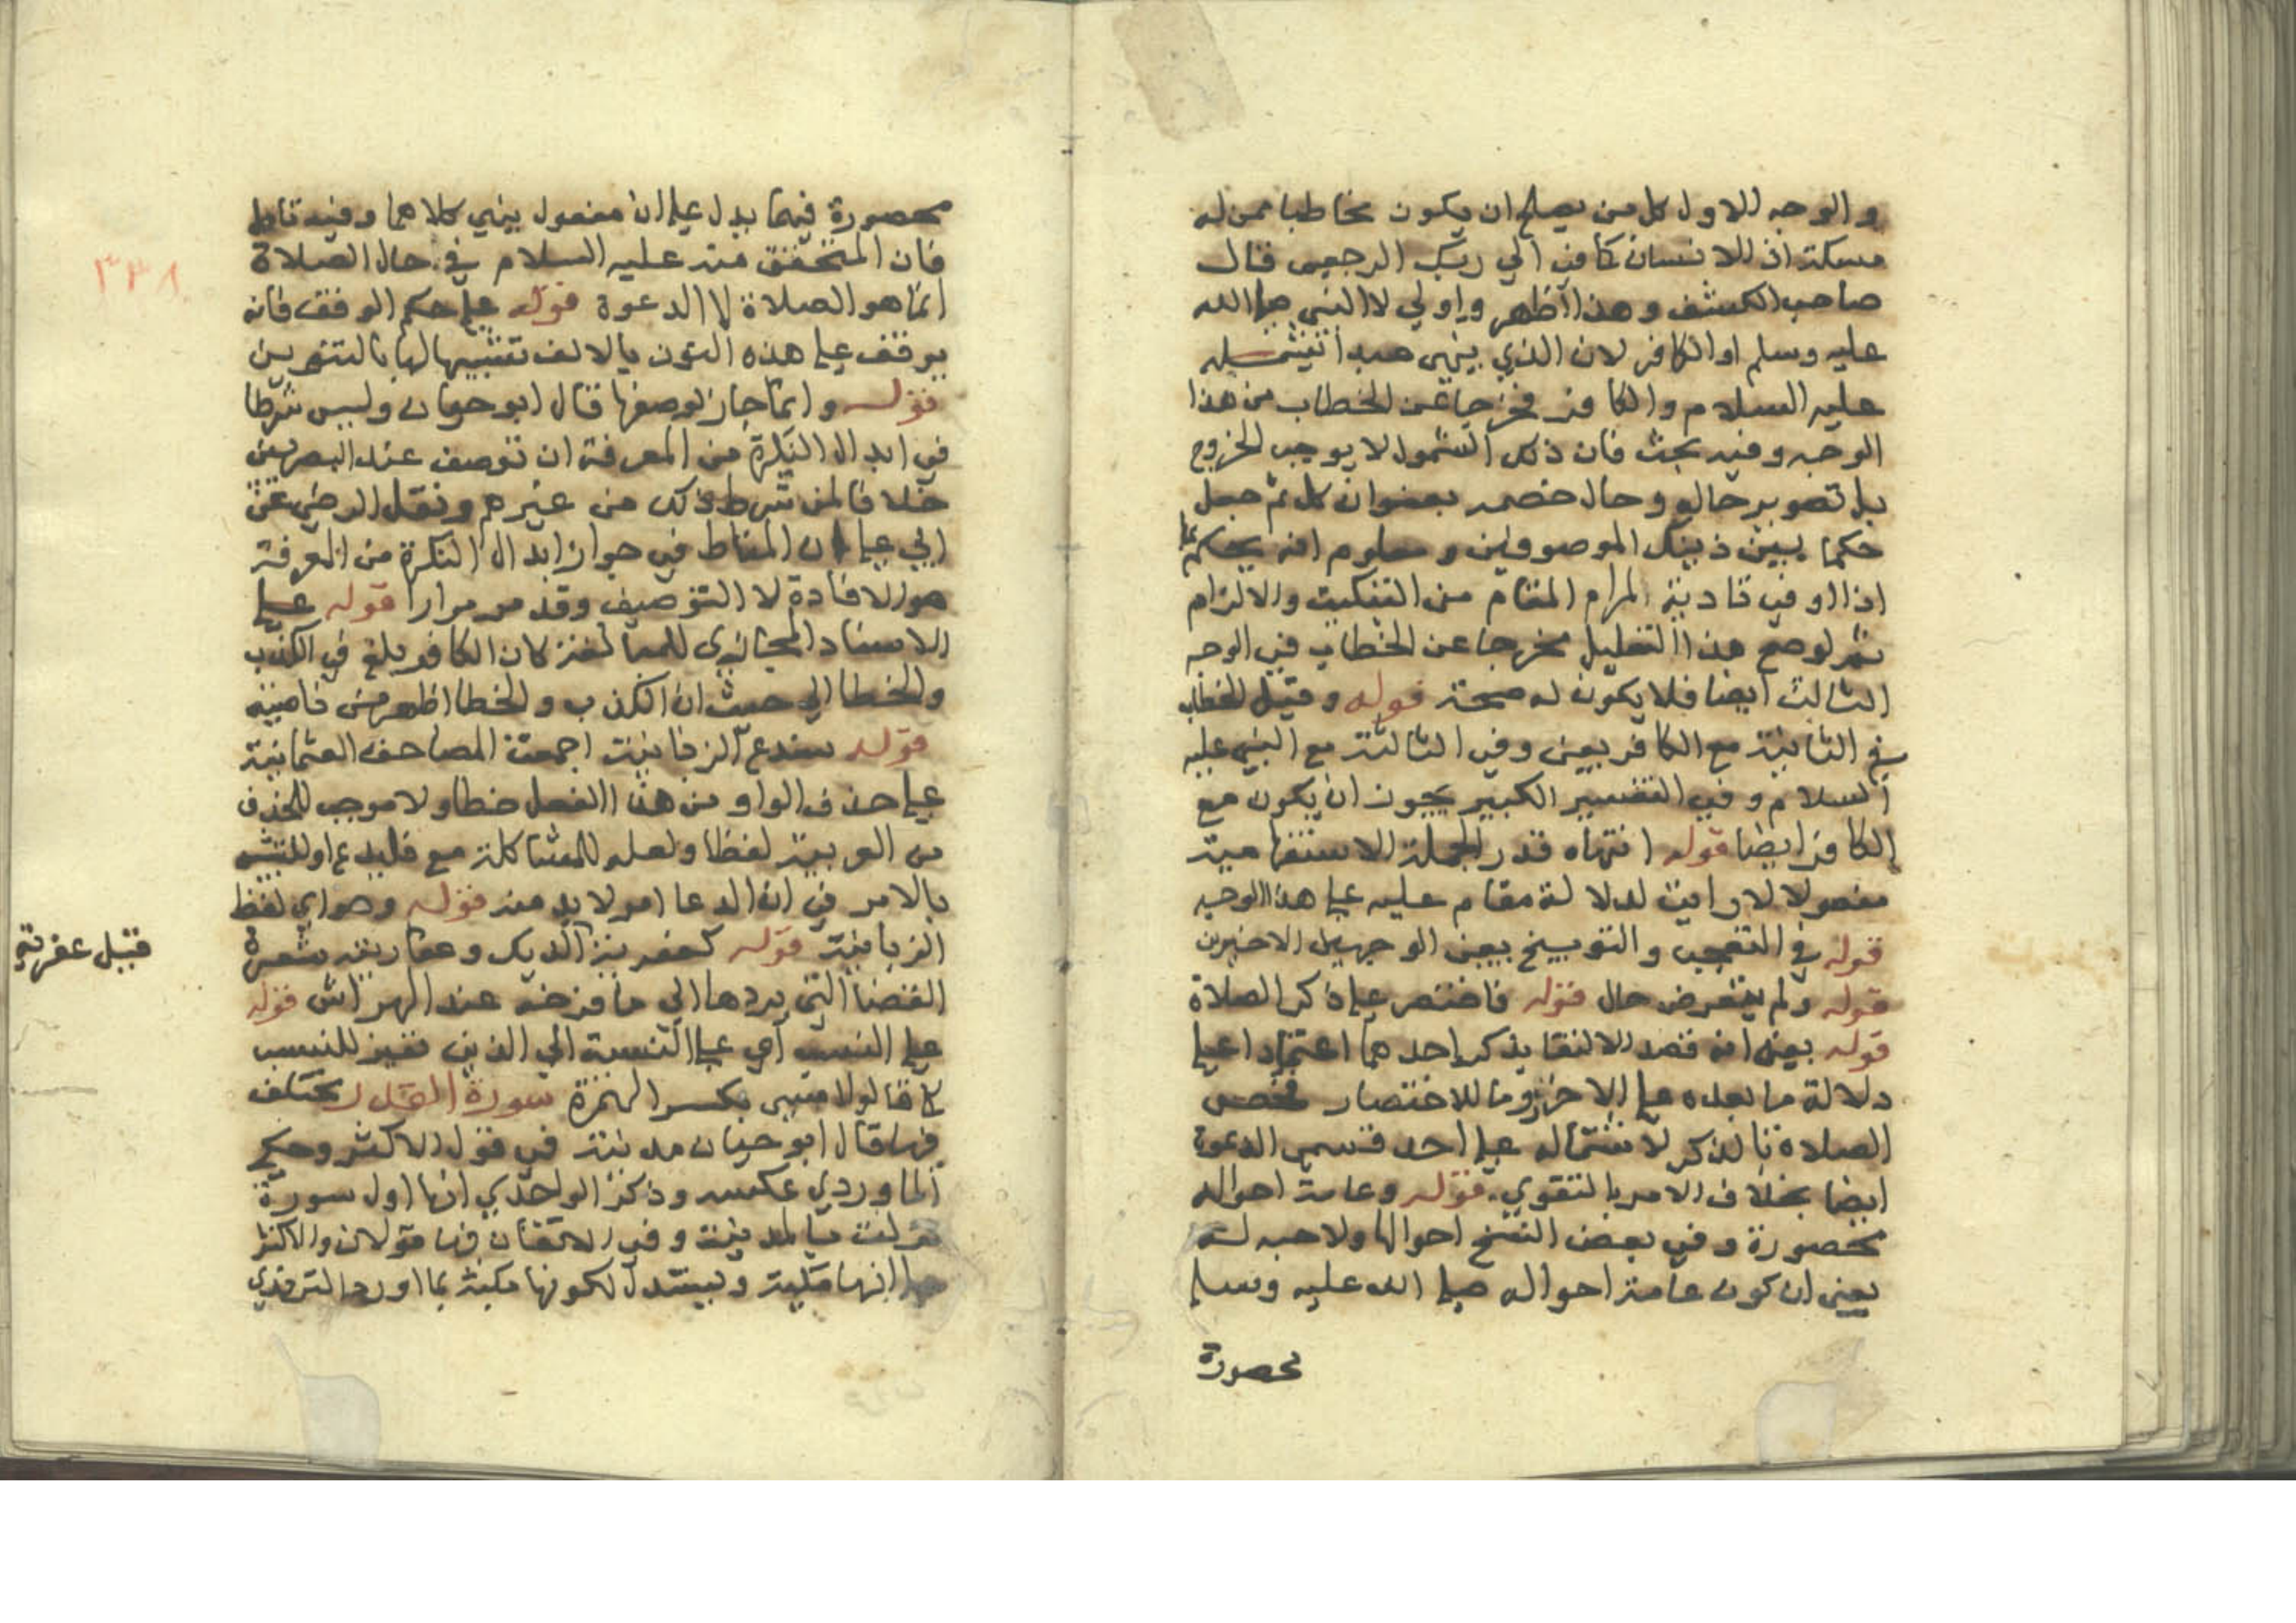 والوجه للاول كل من يصلح ان يكون مخاطبا ممن له
مسكة اذ للانسان كا في الي ربك الرجعى قال
صاحب الكشف وهذا اظهر واولي لا النبي صلى الله
عليه وسلم او الكافر لان الذي ينهى عبدا
عليه السلام والكافر فخرجا عن الخطاب من هذا
الوجه وفيه بحث فان ذلك الشمول لا يوجب الخروج
بل تصوير حاله وحال خصمه بعنوان كل ثم جعل
حكما بين ذينك الموصوفين ومعلوم انه يحكم بما
اذا اوفي تادية المرام المقام من التبكيت والالزام
ثم لو صح هذا التعليل مخرجا عن الخطاب في الوجه
الثالث ايضا فلا يكون له صحة قوله وقيل الخطاب
في الثانية مع الكافر يعنى وفي الثالثة مع النبي عليه
السلام وفي التفسير الكبير يجوز ان يكون مع
الكافر ايضا قوله انتهاه قدر الجملة الاستفهامية
مفعولا لارايت لدلالة مقام عليه على هذا الوجه
قوله في التعجب والتوبيخ يعنى الوجهين الاخيرين
قوله ولم يتعرض حال قوله فاختصر على ذكر الصلاة
قوله يعنى انه قصد الاكتفا بذكر احدهما اعتمادا على
دلالة ما بعده على الاخر وما للاختصار فخص
الصلاة بالذكر لاشتماله على احد قسمي الدعوة
ايضا بخلاف الامر بالتقوي قوله وعامة احواله
محصورة وفي بعض النسخ احوالها ولا وجه له
يعنى ان كون عامة احواله صلى الله عليه وسلم
محصورة
محصورة فيهما يدل على ان مفعول ينهي كلاهما وفيه تامل
فان المتحقق منه عليه السلام في حال الصلاة
انما هو الصلاة لا الدعوة قوله على حكم الوقف فانه
يوقف على هذه النون بالالف تشبيها لها بالتنوين
قوله وانما جاز لوصفها قال ابو حيان وليس شرطا
في ابدال النكرة من المعرفة ان توصف عند البصريين
خلافا لمن شرط ذلك من غيرهم ونقل الرضي عن
ابي علي ان المناط في جواز ابدال النكرة من المعرفة
هو الافادة لا التوصيف وقد مر مرارا قوله على
الاسناد المجازي للمبالغة كان الكافر بلغ في الكذب
والخطا الي حيث ان الكذب والخطا اظهر من ناصيته
قوله سندع الزبانية اجمعت المصاحف العثمانية
على حذف الواو من هذا الفعل خطا ولا موجب للحذف
من العربية لفظا ولعله للمشاكلة مع فليدع او للتشبيه
بالامر في ان الدعا امر لا بد منه قوله وهو اي لفظ
الزبانية قوله كعفرية الديك وعفارية شعرة
القفا التي يردها الي يافوخه عند الهراش قوله
على النسب اي على النسبة الي الزبن فغير للنسب
كما قالوا امسى بكسر الهمزة سورة القدر مختلف
فيها قال ابو حيان مدنية في قول الاكثر وحكى
الماوردي عكسه وذكر الواحدي انها اول سورة
نزلت بالمدينة وفي الاتقان فيها قولان والاكثر
على انها مكية ويستدل لكونها مكية بما اورد الترمذي
قبل عفرية
٣٣٨